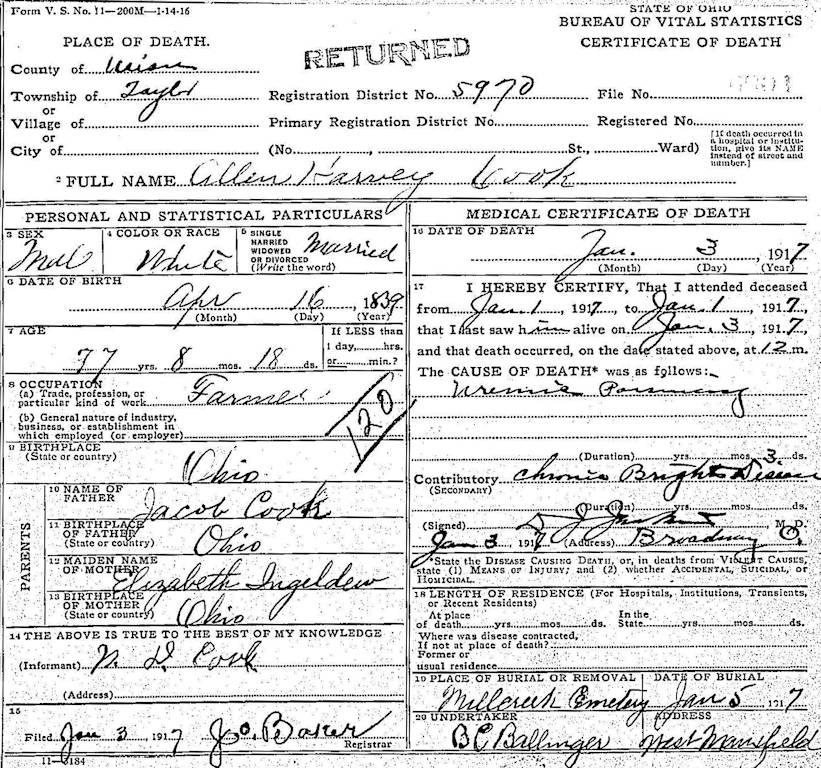 Form V. S. No. 11—200M—1-14-16
STATE OF OHIO
BUREAU OF VITAL STATISTICS
CERTIFICATE OF DEATH
PLACE OF DEATH.
RETURNED
County of Union
Township of Taylor
Registration District No. 5970 File No.
or
Village of
Primary Registration District No. Registered No.
or
City of (No. , St., Ward)
[If death occurred in a hospital or institution, give its NAME instead of street and number.]
2 FULL NAME Allen Harvey Cook
PERSONAL AND STATISTICAL PARTICULARS
3 SEX
Mal
4 COLOR OR RACE
White
5 SINGLE MARRIED WIDOWED OR DIVORCED (Write the word)
Married
6 DATE OF BIRTH
Apr 16, 1839
(Month) (Day) (Year)
7 AGE
77 yrs. 8 mos. 18 ds.
If LESS than 1 day, hrs. or min.?
8 OCCUPATION
(a) Trade, profession, or particular kind of work Farmer
(b) General nature of industry, business, or establishment in which employed (or employer)
120
9 BIRTHPLACE
(State or country)
Ohio
PARENTS
10 NAME OF FATHER
Jacob Cook
11 BIRTHPLACE OF FATHER
(State or country)
Ohio
12 MAIDEN NAME OF MOTHER
Elizabeth Ingeldew
13 BIRTHPLACE OF MOTHER
(State or country)
Ohio
14 THE ABOVE IS TRUE TO THE BEST OF MY KNOWLEDGE
(Informant) N. D. Cook
(Address)
15
Filed Jan 3 1917 Jo. Baker
Registrar
11—3184
MEDICAL CERTIFICATE OF DEATH
16 DATE OF DEATH
Jan. 3, 1917
(Month) (Day) (Year)
17 I HEREBY CERTIFY, That I attended deceased
from Jan 1, 1917, to Jan 1, 1917,
that I last saw him alive on Jan. 3, 1917,
and that death occurred, on the date stated above, at 12 m.
The CAUSE OF DEATH* was as follows:—
Uremic
(Duration) yrs. mos. 3 ds.
Contributory Chronic Brights Disease
(SECONDARY)
(Duration) yrs. mos. ds.
(Signed) M. D.
Jan 3, 1917 (Address) Broadway O.
*State the DISEASE CAUSING DEATH, or, in deaths from VIOLENT CAUSES,
state (1) MEANS OF INJURY; and (2) whether ACCIDENTAL, SUICIDAL, or
HOMICIDAL.
18 LENGTH OF RESIDENCE (For Hospitals, Institutions, Transients,
or Recent Residents)
At place of death yrs. mos. ds. In the State yrs. mos. ds.
Where was disease contracted,
If not at place of death?
Former or
usual residence
19 PLACE OF BURIAL OR REMOVAL
Millcreek Cemetery
DATE OF BURIAL
Jan 5 1917
20 UNDERTAKER
B C Ballinger
ADDRESS
West Mansfield